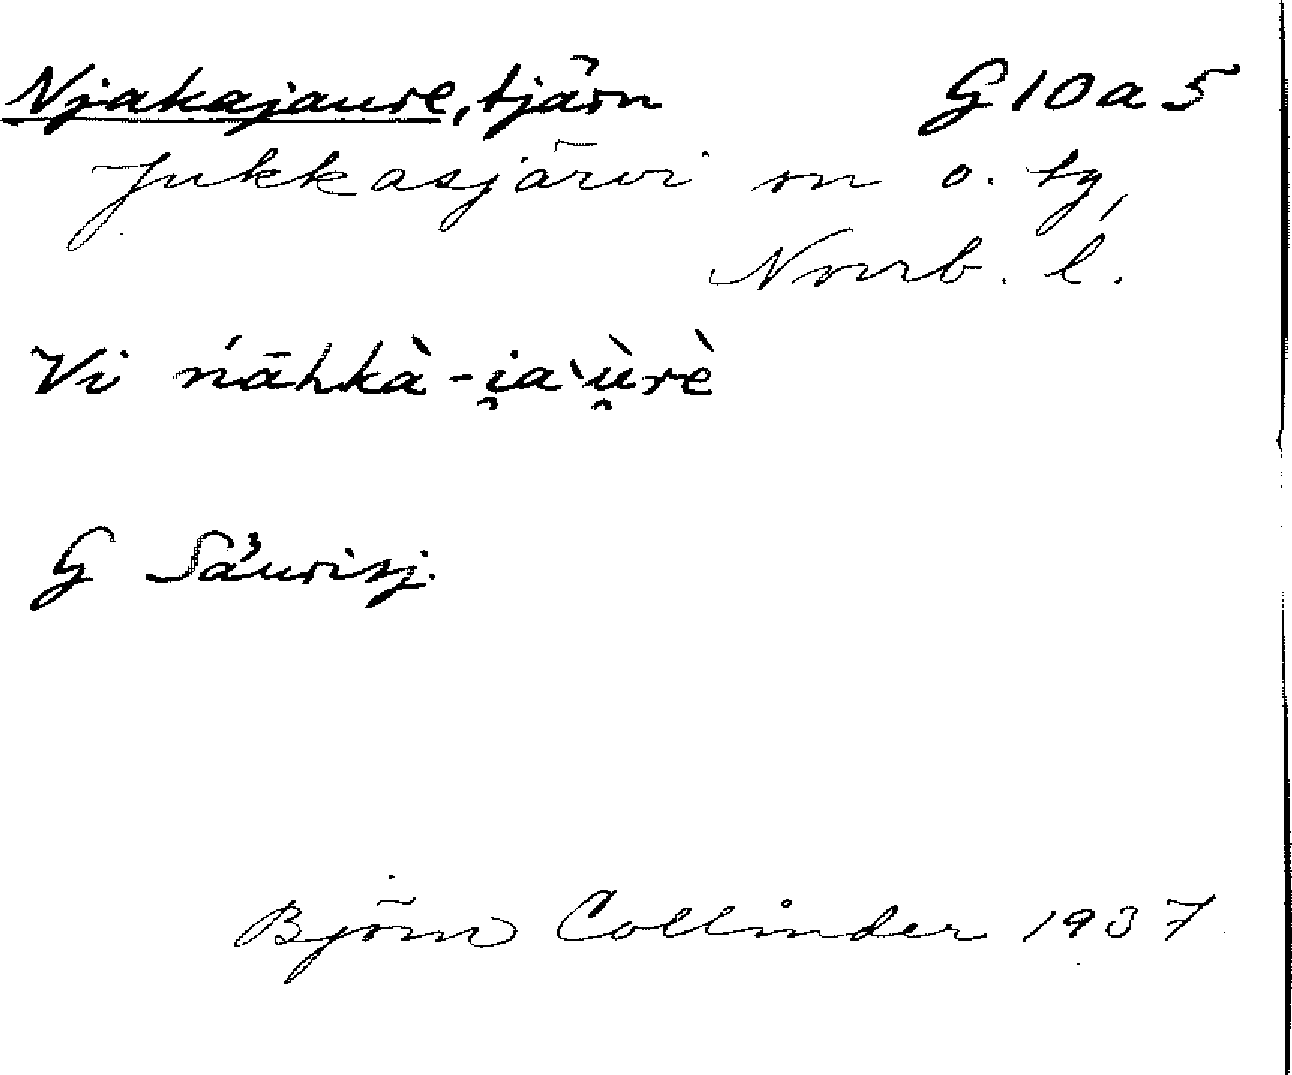 Njakajaure, tjärn G10a5
Jukkasjärvi sn o. tg,
Norrb. l.
Vi ńāhkà-i̯a`ù̯rè
G Sáurisj.
Björn Collinder 1937